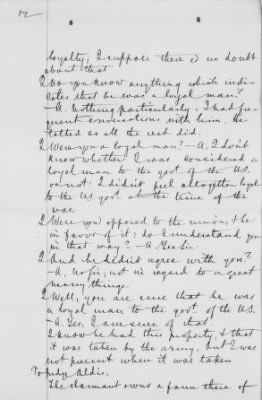 12
loyalty; I suppose there is no doubt
about that
Q Do you know anything which indi-
cates that he was a loyal man?
- A. Nothing particularly; I had fre-
quent conversations with him. He
talked as all the rest did.
Q Were you a loyal man? - A. I don't
know whether I was considered a
loyal man to the govt of the U.S.
or not. I didn't feel altogether loyal
to the US govt at the time of the
war.
Q Were you opposed to the union, & he
in favor of it; do I understand you
in that way? - A Yes sir.
Q And he didn't agree with you?
- A. No sir; not in regard to a great
many things.
Q Well, you are sure that he was
a loyal man to the govt of the U.S.
- A. Yes. I am sure of that.
I know he had this property, & that
it was taken by the army, but I was
not present when it was taken
To Judge Aldis.
The claimant owns a farm there of